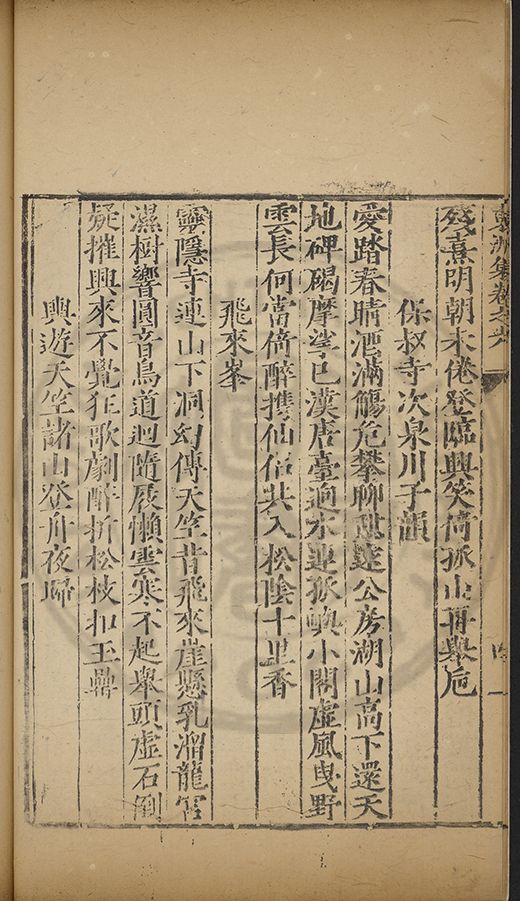 洲集卷之八
四
殘熹明朝未倦登臨興笑倚孤山再舉卮
保叔寺次泉川子韻
愛踏春晴酒滿觴危攀聊憩遠公房湖山高下還天
地碑碣摩挲已漢唐臺逈水連孤嶼小閣虛風曳野
雲長何當倚醉携仙侶共入松陰十里香
飛來峯
靈隱寺連山下洞幻傳天竺昔飛來崖懸乳溜龍宮
濕樹響圓音鳥道迴隨屐懶雲寒不起舉頭虛石倒
疑摧興來不覺狂歌劇醉折松枝扣玉罍
興遊天竺諸山登舟夜歸